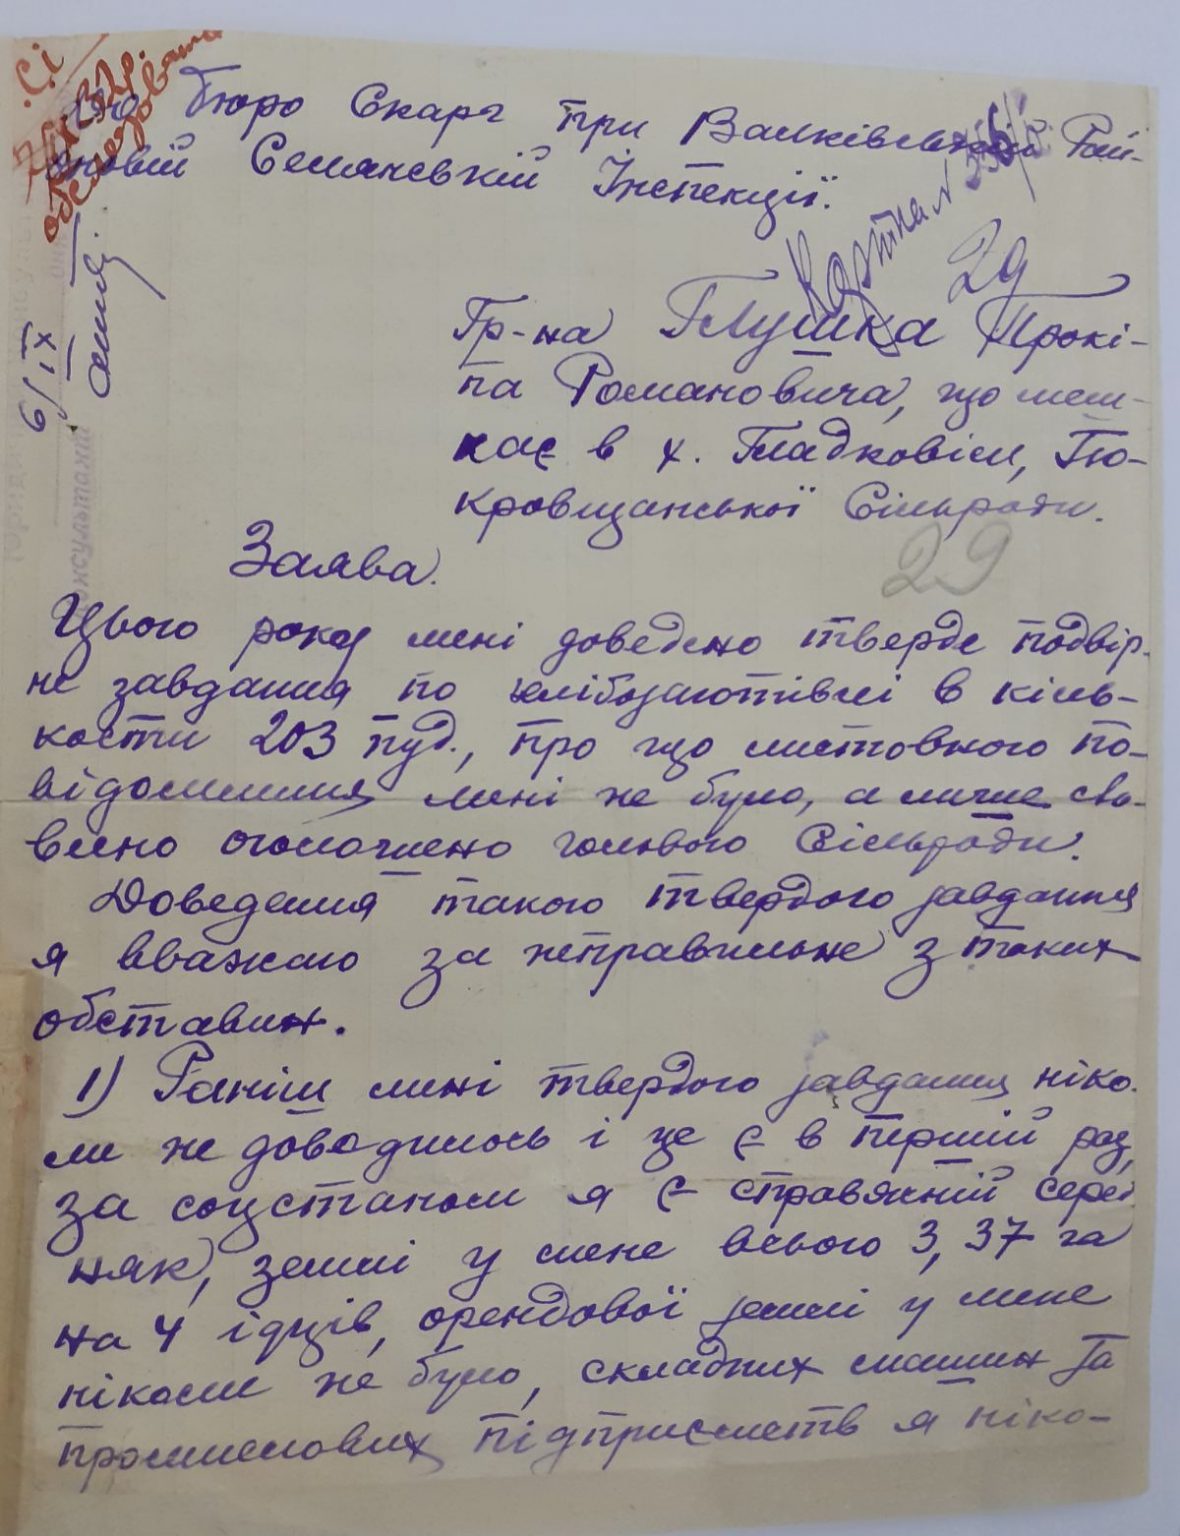 До бюро Скарг при Валківській Рай-
оновій Селянській Інспекції.
Картка N 356/
29
Гр-на Глушка Прокі-
па Романовича, що меш-
кає в х. Гладковім, Гю-
кровщанської Сільради.
29
Заява.
Цього року мені доведено тверде подвір-
не завдання по хлібозаготівлі в кіль-
кости 203 пуд., про що листовного по-
відомлення мені не було, а лише сло-
весно оголошено головою Сільради.
Доведення такого твердого завдання
я вважаю за неправильне з таких
обставин.
1) Раніш мені твердого завдання ніко-
ли не доводилось і це є в перший раз,
за соцстаном я є справжній серед
няк, землі у мене всього 3,37 га
на 4 їдців, орендової землі у мене
ніколи не було, складних машин та
промислових підприємств я ніко-
6/IX
консультація